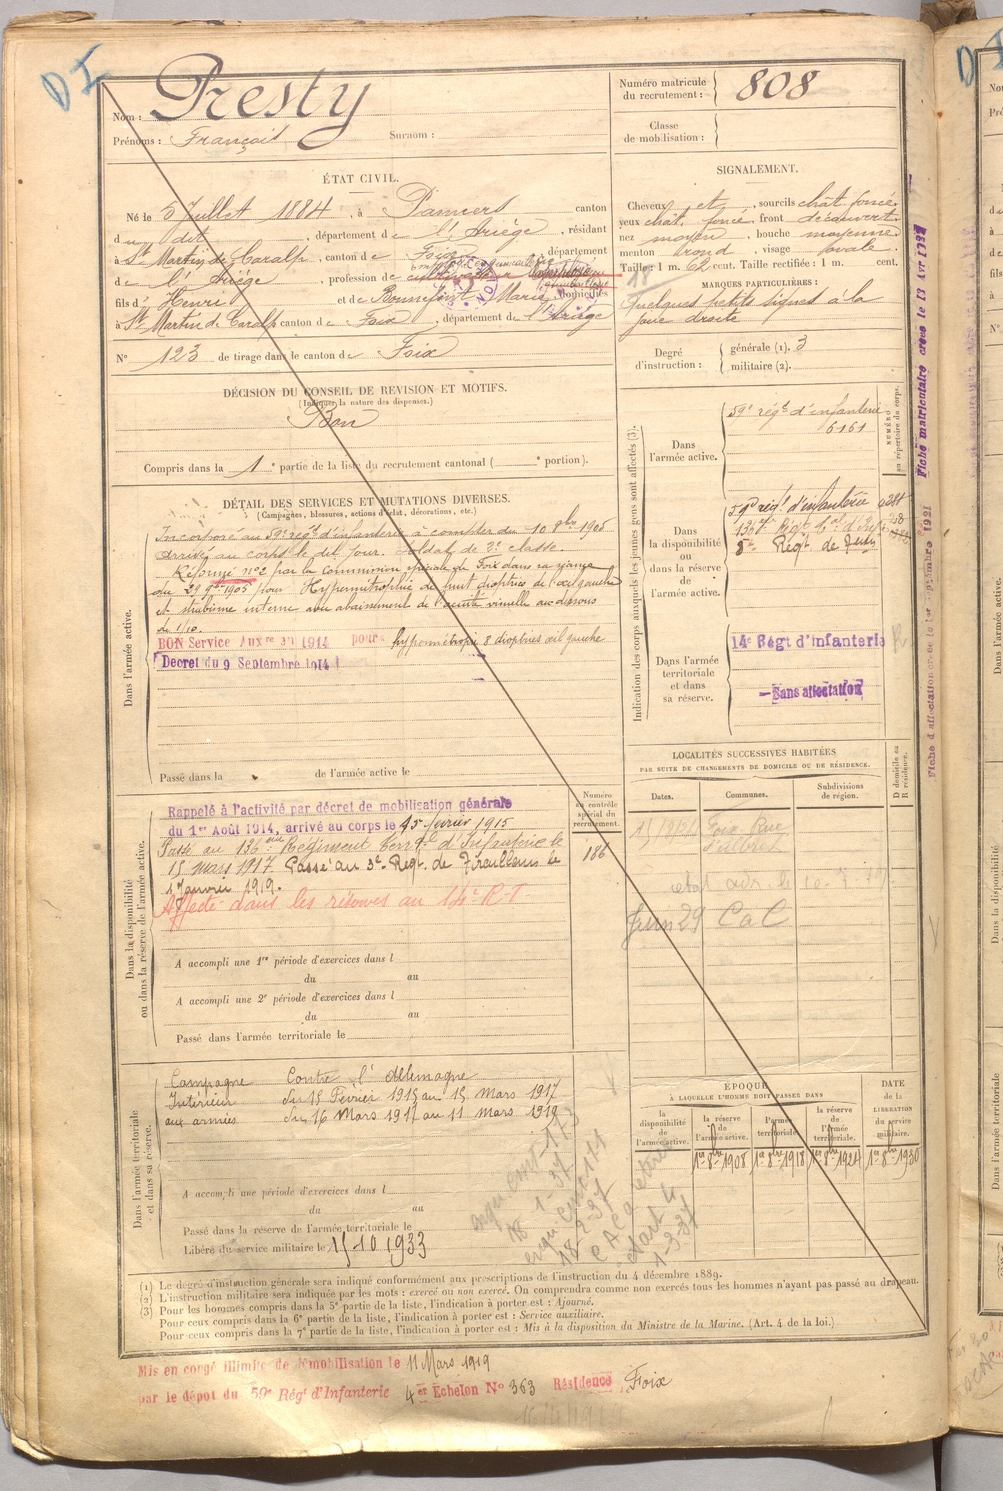 D I
Nom : Presty
Prénoms : François Surnom :
Numéro matricule du recrutement : 808
Classe de mobilisation :
ÉTAT CIVIL.
Né le 5 Juillet 1884, à Pamiers canton
du dit, département de l'Ariège, résidant
à St Martin de Caralp, canton de Foix, département
de l'Ariège, profession de cultivateur
fils d' Henri et de Bonnefont Marie, domiciliés
à St Martin de Caralp canton de Foix, département de l'Ariège
N° 123 de tirage dans le canton de Foix
SIGNALEMENT.
Cheveux et, sourcils chât. foncé
yeux chât. foncé, front découvert
nez moyen, bouche moyenne
menton rond, visage ovale
Taille : 1 m. 62 cent. Taille rectifiée : 1 m. cent.
MARQUES PARTICULIÈRES :
Quelques petits signes à la
joue droite
Degré d'instruction : générale (1). 3
militaire (2).
DÉCISION DU CONSEIL DE REVISION ET MOTIFS.
(Indiquer la nature des dispenses.)
Bon
Compris dans la 1e partie de la liste du recrutement cantonal ( e portion).
DÉTAIL DES SERVICES ET MUTATIONS DIVERSES.
(Campagnes, blessures, actions d'éclat, décorations, etc.)
Dans l'armée active.
Incorporé au 59e régt d'infanterie à compter du 10 8bre 1905
Arrivé au corps le dit jour. Soldat de 2e classe.
Réformé n°2 par la commission spéciale de Foix dans sa séance
du 29 9bre 1905 pour Hypermétrophie de huit dioptries de l'œil gauche
et strabisme interne avec abaissement de l'acuité visuelle au dessous
de 1/10.
BON Service Auxre en 1914 pour hypermétropie 8 dioptries œil gauche
Décret du 9 Septembre 1914
Passé dans la de l'armée active le
Indication des corps auxquels les jeunes gens sont affectés (3).
NUMÉRO au répertoire du corps.
Dans l'armée active.
59e régt d'infanterie
6161
Dans la disponibilité ou dans la réserve de l'armée active.
59e régt d'infanterie
136e Régt
8e Régt de
Dans l'armée territoriale et dans sa réserve.
14e Régt d'infanterie
Sans affectation
Fiche matriculaire créée le 13 Avr
Fiche d'affectation créée le 1er Septembre 1921
Dans la disponibilité ou dans la réserve de l'armée active.
Numéro au contrôle spécial du recrutement.
186
Rappelé à l'activité par décret de mobilisation générale
du 1er Août 1914, arrivé au corps le 15 février 1915
Passé au 136eme Régiment terral d'Infanterie le
15 mars 1917. Passé au 3e Régt de Tirailleurs le
1er Janvier 1919.
Affecté dans les réserves au 14e R.T
A accompli une 1re période d'exercices dans l
du au
A accompli une 2e période d'exercices dans l
du au
Passé dans l'armée territoriale le
LOCALITÉS SUCCESSIVES HABITÉES
PAR SUITE DE CHANGEMENTS DE DOMICILE OU DE RÉSIDENCE.
Dates. Communes. Subdivisions de région. D domicile ou R résidence.
Foix Rue
Juin 29 CaC
Dans l'armée territoriale et dans sa réserve.
Campagne Contre l'Allemagne
Intérieur du 15 Février 1915 au 15 Mars 1917
aux armées du 16 Mars 1917 au 11 Mars 1919
A accompli une période d'exercices dans l
du au
Passé dans la réserve de l'armée territoriale le
Libéré du service militaire le 15 10 1933
ÉPOQUE
À LAQUELLE L'HOMME DOIT PASSER DANS
la disponibilité de l'armée active.
la réserve de l'armée active.
l'armée territoriale.
la réserve de l'armée territoriale.
DATE de la LIBÉRATION du service militaire.
1er 8bre 1908 1er 8bre 1918 1er 8bre 1924 1er 8bre 1930
(1) Le degré d'instruction générale sera indiqué conformément aux prescriptions de l'instruction du 4 décembre 1889.
(2) L'instruction militaire sera indiquée par les mots : exercé ou non exercé. On comprendra comme non exercés tous les hommes n'ayant pas passé au drapeau.
(3) Pour les hommes compris dans la 5e partie de la liste, l'indication à porter est : Ajourné.
Pour ceux compris dans la 6e partie de la liste, l'indication à porter est : Service auxiliaire.
Pour ceux compris dans la 7e partie de la liste, l'indication à porter est : Mis à la disposition du Ministre de la Marine. (Art. 4 de la loi.)
Mis en congé illimité de démobilisation le 11 Mars 1919
par le dépôt du 59e Régt d'Infanterie 4er Echelon N° 363 Résidence, Foix